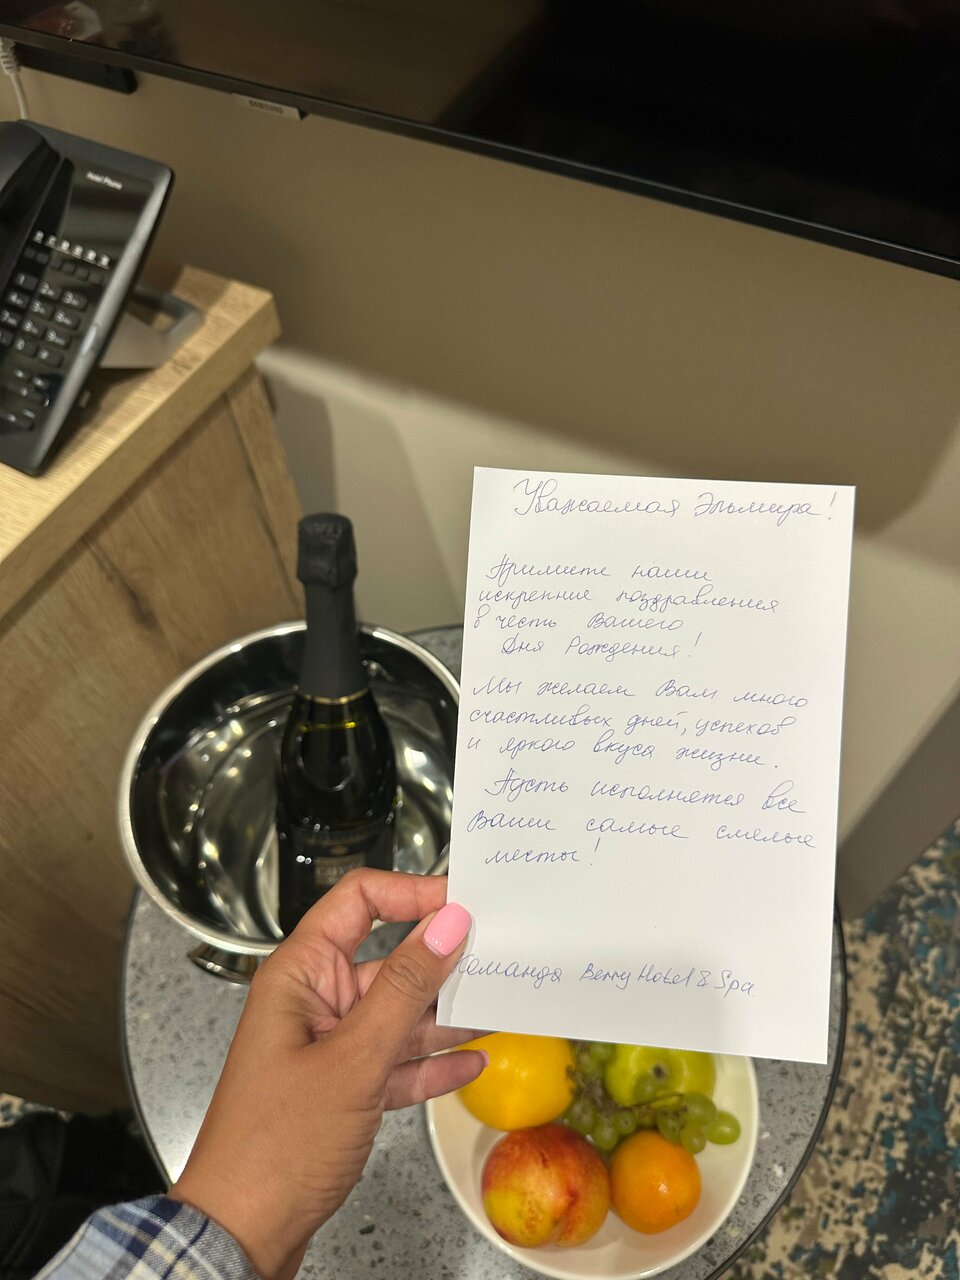 SAMSUNG
Hotel Phone
Уважаемая Эльмира!
Примите наши
искренние поздравления
в честь Вашего
Дня Рождения!
Мы желаем Вам много
счастливых дней, успехов
и яркого вкуса жизни.
Пусть исполнятся все
Ваши самые смелые
мечты!
Команда Berry Hotel & Spa